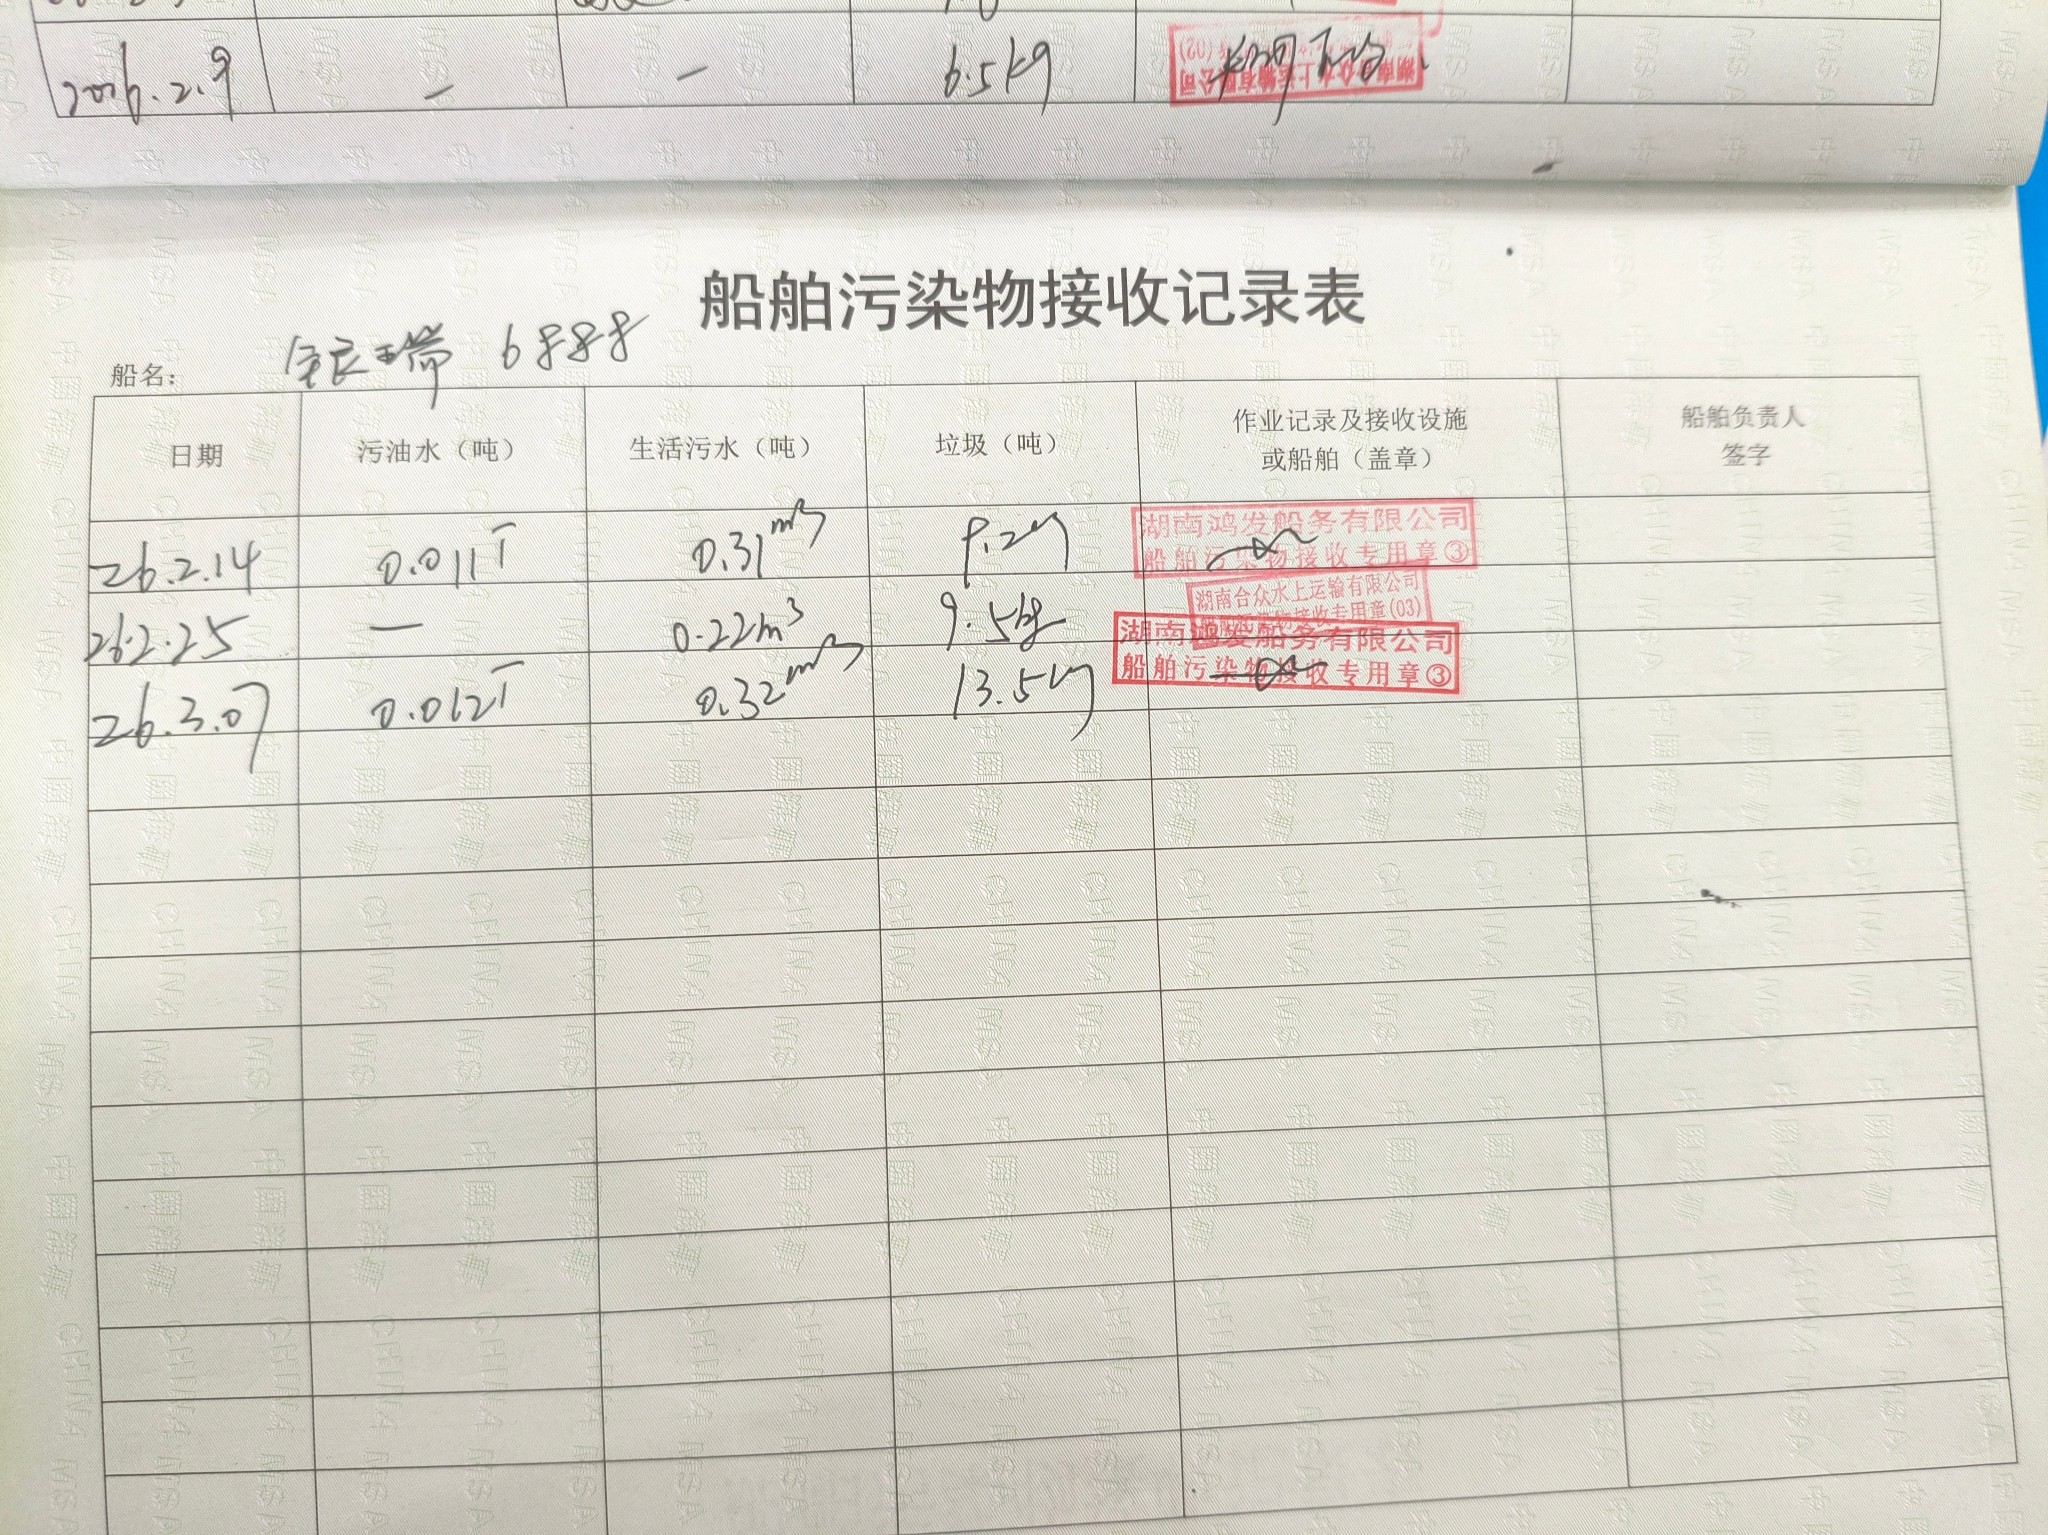 2026.2.9 — — 6.5kg
湖南合众水上运输有限公司
(02)
船舶污染物接收记录表
船名： 银瑞 6888
日期 污油水（吨） 生活污水（吨） 垃圾（吨） 作业记录及接收设施或船舶（盖章） 船舶负责人签字
26.2.14 0.011T 0.31m³ 8.2kg
湖南鸿发船务有限公司
船舶污染物接收专用章③
26.2.25 — 0.22m³ 9.5kg
湖南合众水上运输有限公司
船舶污染物接收专用章(03)
26.3.07 0.012T 0.32m³ 13.5kg
湖南鸿发船务有限公司
船舶污染物接收专用章③